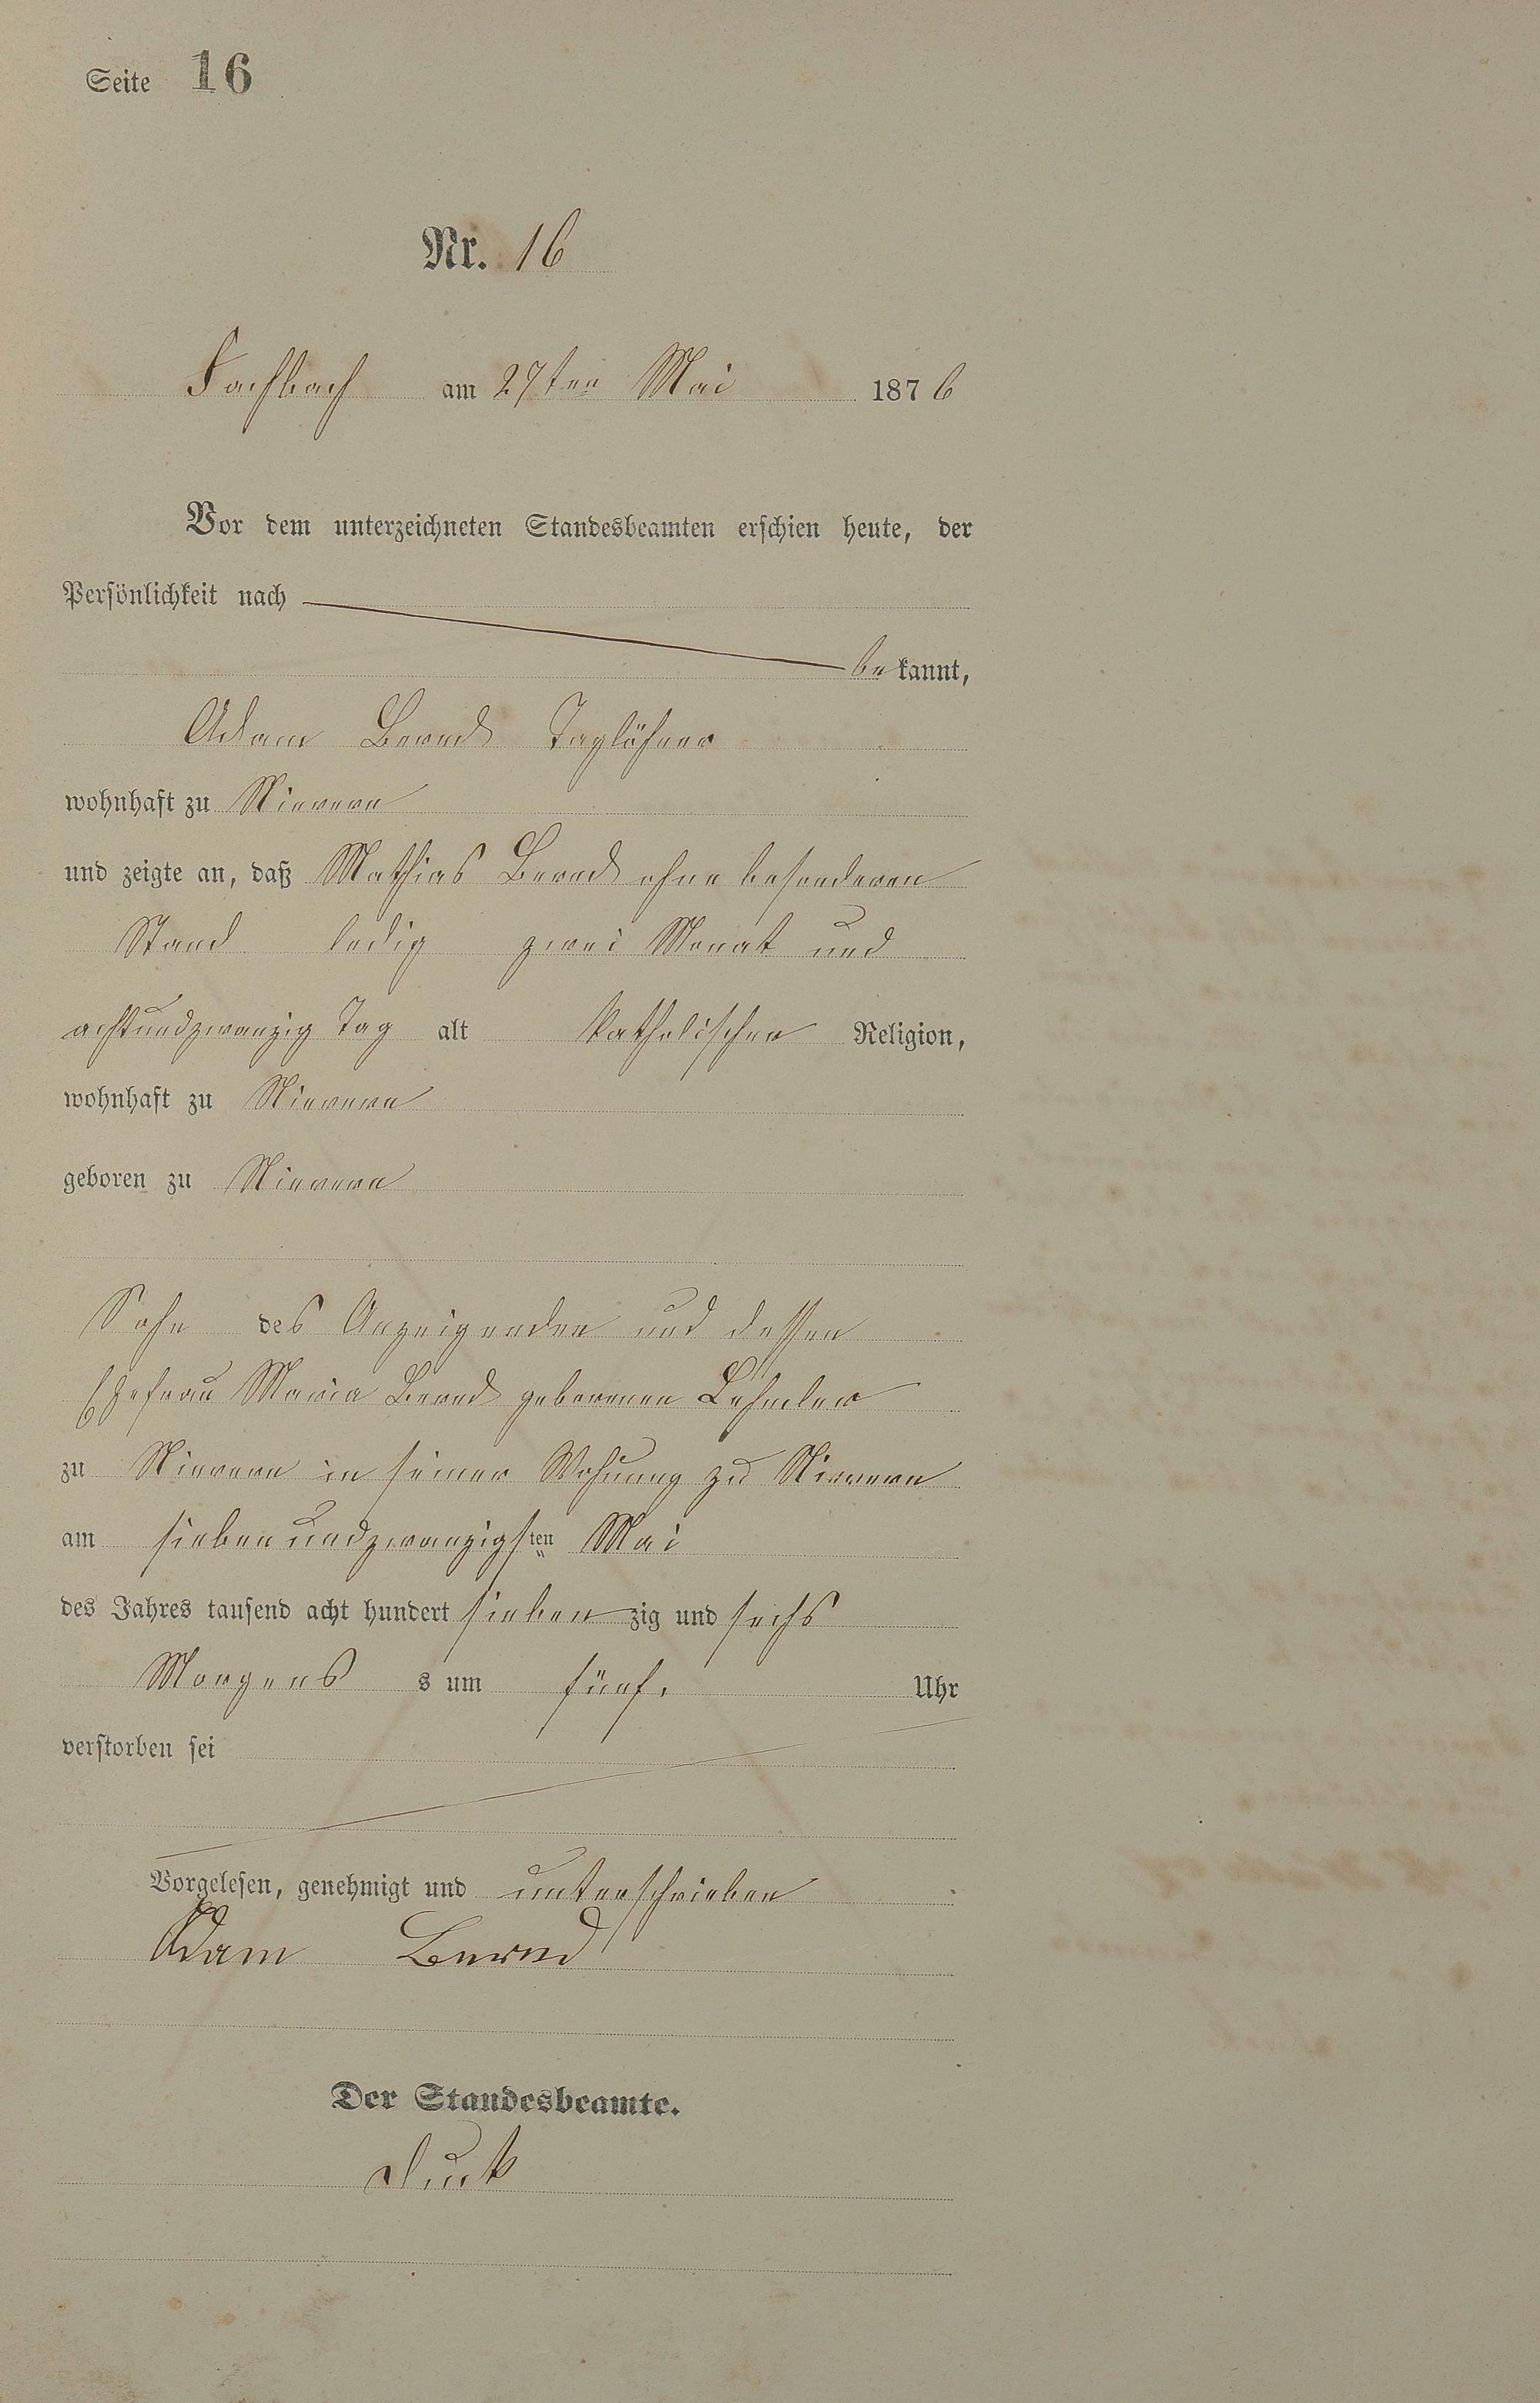 Seite 16
Nr. 16
Fachbach am 27ten Mai 1876
Vor dem unterzeichneten Standesbeamten erschien heute, der
Persönlichkeit nach
bekannt,
Adam Bernd Taglöhner
wohnhaft zu Nievern
und zeigte an, daß Mathias Bernd ohne besonderen
Stand ledig zwei Monat und
achtundzwanzig Tag alt katholischer Religion,
wohnhaft zu Nievern
geboren zu Nievern
Sohn des Anzeigenden und dessen
Ehefrau Maria Bernd geborenen
zu Nievern in seiner Wohnung zu Nievern
am siebenundzwanzigsten Mai
des Jahres tausend acht hundert siebenzig und sechs
Morgens s um fünf. Uhr
verstorben sei
Vorgelesen, genehmigt und unterschrieben
Adam Bernd
Der Standesbeamte.